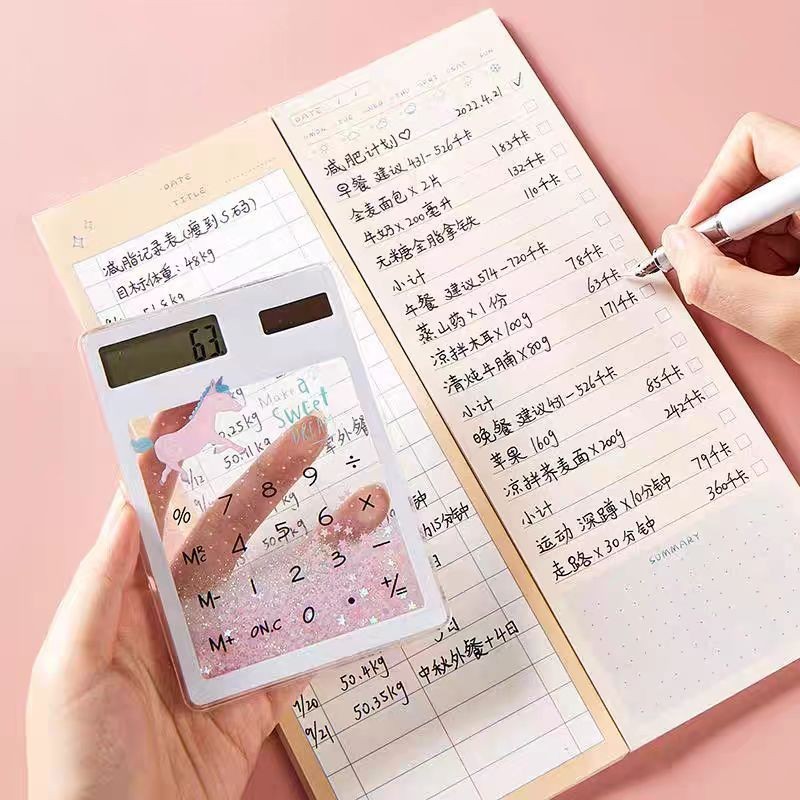 DATE
TITLE
减脂记录表(瘦到S码)
目标体重：48kg
51.8kg
63
Make a
SWEET
DREAM
0.25kg
9/12 50.71kg 军外餐
kg
% 7 8 9 ÷
MRC 4 5 6 ×
M- 1 2 3 −
M+ ON.C 0 . +/=
50.4kg
中秋外餐+4日
9/21 50.35kg
DATE / /
MON TUE WED THU FRI SAT SUN
减肥计划♡ 2022.4.21 ✓
早餐 建议431-526千卡
全麦面包×2片 183千卡
牛奶×200毫升 132千卡
无米糖全脂拿铁 110千卡
小计
午餐 建议574-720千卡
蒸山药×1份 78千卡
凉拌木耳×100g 63千卡
清炖牛腩×80g 171千卡
小计
晚餐 建议431-526千卡
苹果 160g 85千卡
凉拌荞麦面×200g 242千卡
小计
运动 深蹲×10分钟 79千卡
走路×30分钟 360千卡
SUMMARY